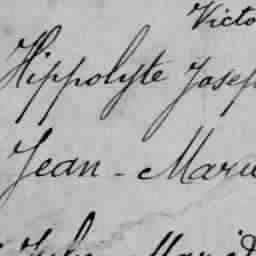 Victo
Hippolyte Josep
Jean-Marie